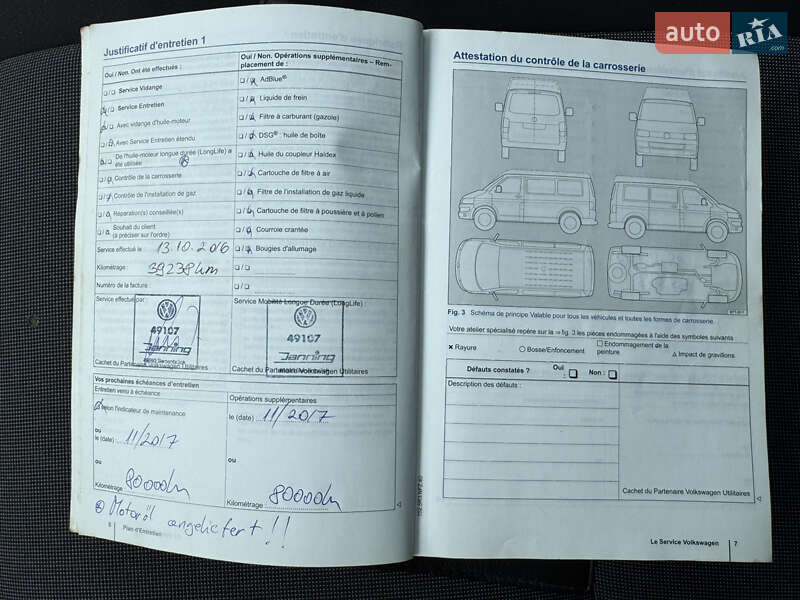 Justificatif d'entretien 1
Oui / Non. Ont été effectués :
Service Vidange
Service Entretien
Avec vidange d'huile-moteur
Avec Service Entretien étendu
De l'huile-moteur longue durée (LongLife) a
été utilisée
Contrôle de la carrosserie
Contrôle de l'installation de gaz
Réparation(s) conseillée(s)
Souhait du client
(à préciser sur l'ordre)
Service effectué le : 13.10.2016
Kilométrage : 39238km
Numéro de la facture :
Oui / Non. Opérations supplémentaires – Rem-
placement de :
AdBlue®
Liquide de frein
Filtre à carburant (gazole)
DSG® : huile de boîte
Huile du coupleur Haldex
Cartouche de filtre à air
Filtre de l'installation de gaz liquide
Cartouche de filtre à poussière et à pollen
Courroie crantée
Bougies d'allumage
Service effectué par :
49107
Janning
Cachet du Partenaire Volkswagen Utilitaires
Service Mobilité Longue Durée (LongLife) :
49107
Janning
Cachet du Partenaire Volkswagen Utilitaires
Vos prochaines échéances d'entretien
Entretien venu à échéance
Selon l'indicateur de maintenance
ou
le (date) 11/2017
ou
Kilométrage 80000km
Opérations supplémentaires
le (date) 11/2017
ou
Kilométrage 80000km
Motoröl angeliefert!!
6 Plan d'Entretien
Attestation du contrôle de la carrosserie
Fig. 3 Schéma de principe Valable pour tous les véhicules et toutes les formes de carrosserie.
Votre atelier spécialisé repère sur la ⇒ fig. 3 les pièces endommagées à l'aide des symboles suivants
× Rayure
○ Bosse/Enfoncement
□ Endommagement de la
peinture
△ Impact de gravillons
Défauts constatés ? Oui : Non :
Description des défauts :
Cachet du Partenaire Volkswagen Utilitaires
Le Service Volkswagen 7
auto RIA .com